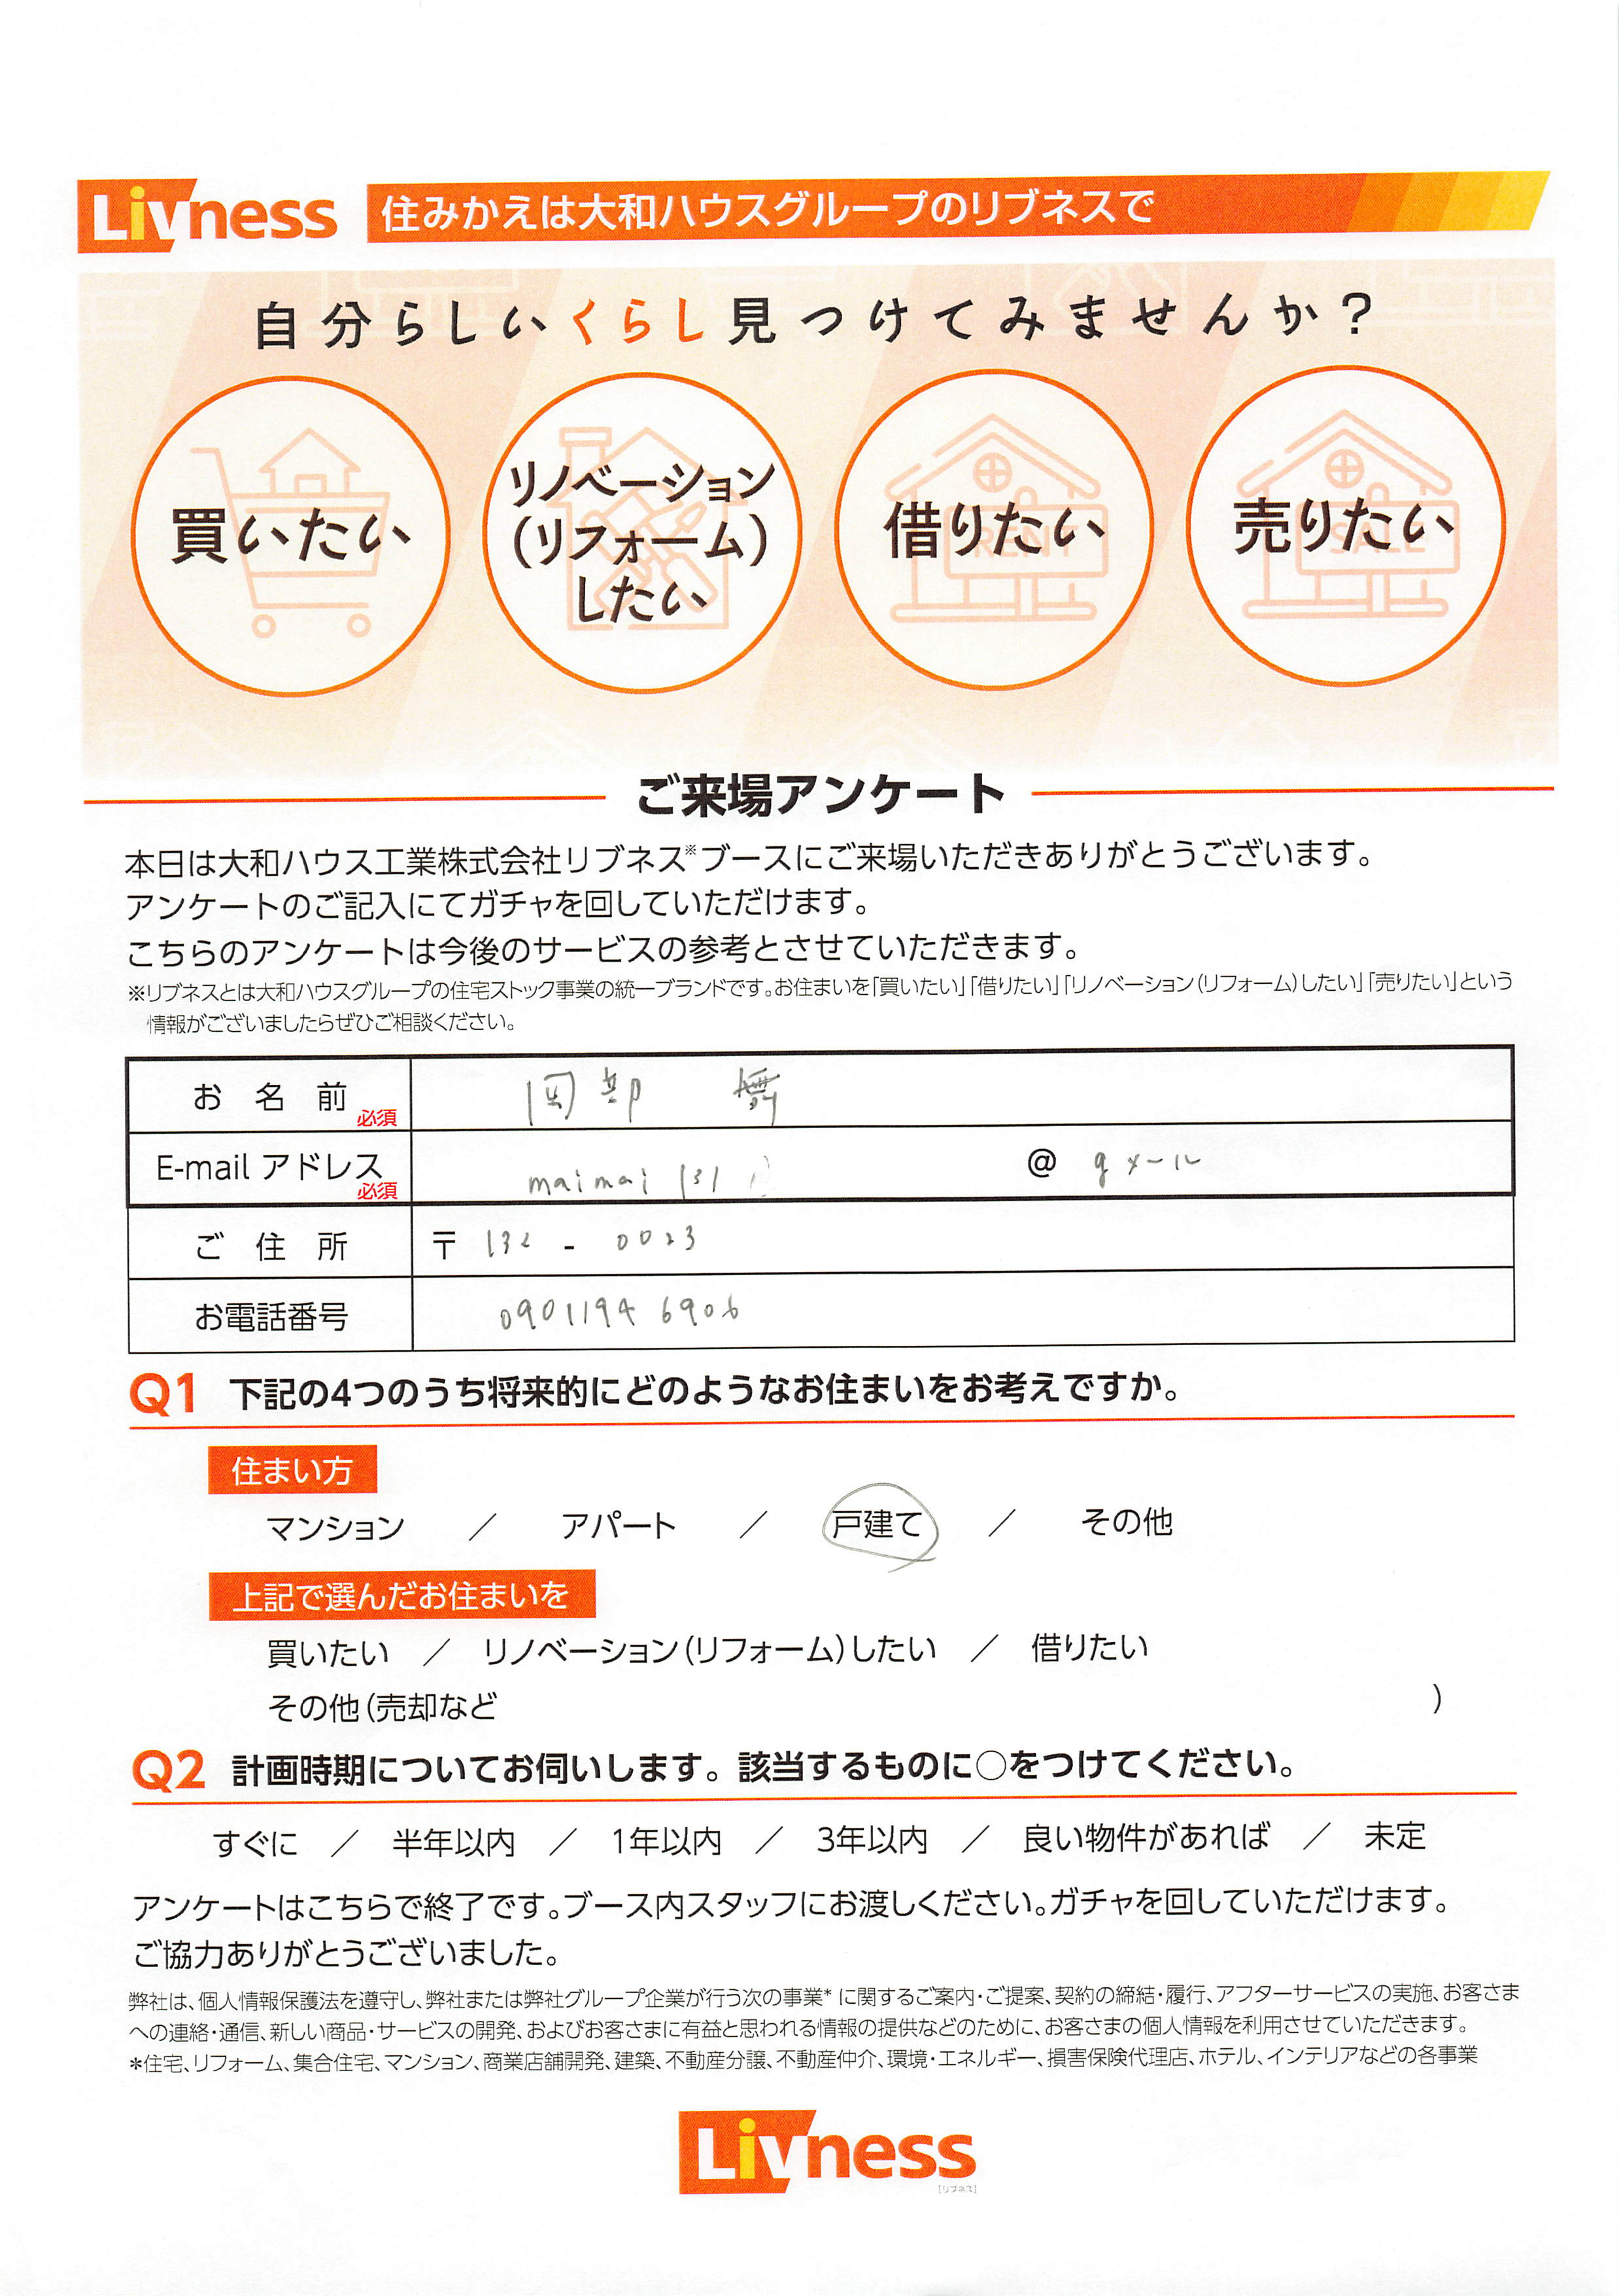 Livness 住みかえは大和ハウスグループのリブネスで
自分らしいくらし見つけてみませんか？
買いたい
リノベーション
(リフォーム)
したい
RENT
借りたい
SALE
売りたい
ご来場アンケート
本日は大和ハウス工業株式会社リブネス※ブースにご来場いただきありがとうございます。
アンケートのご記入にてガチャを回していただけます。
こちらのアンケートは今後のサービスの参考とさせていただきます。
※リブネスとは大和ハウスグループの住宅ストック事業の統一ブランドです。お住まいを「買いたい」「借りたい」「リノベーション(リフォーム)したい」「売りたい」という
情報がございましたらぜひご相談ください。
お名前 必須 岡部 舞
E-mail アドレス 必須 maimai 131 @ gメール
ご住所 〒 132 - 0023
お電話番号 0901194 6906
Q1 下記の4つのうち将来的にどのようなお住まいをお考えですか。
住まい方
マンション ／ アパート ／ 戸建て ／ その他
上記で選んだお住まいを
買いたい ／ リノベーション(リフォーム)したい ／ 借りたい
その他(売却など )
Q2 計画時期についてお伺いします。該当するものに○をつけてください。
すぐに ／ 半年以内 ／ 1年以内 ／ 3年以内 ／ 良い物件があれば ／ 未定
アンケートはこちらで終了です。ブース内スタッフにお渡しください。ガチャを回していただけます。
ご協力ありがとうございました。
弊社は、個人情報保護法を遵守し、弊社または弊社グループ企業が行う次の事業* に関するご案内・ご提案、契約の締結・履行、アフターサービスの実施、お客さま
への連絡・通信、新しい商品・サービスの開発、およびお客さまに有益と思われる情報の提供などのために、お客さまの個人情報を利用させていただきます。
*住宅、リフォーム、集合住宅、マンション、商業店舗開発、建築、不動産分譲、不動産仲介、環境・エネルギー、損害保険代理店、ホテル、インテリアなどの各事業
Livness
[リブネス]